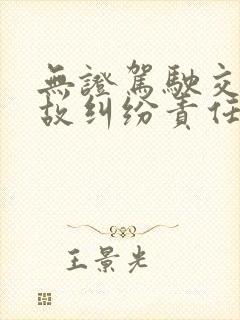 無證駕駛交
故纠纷責任
王景光